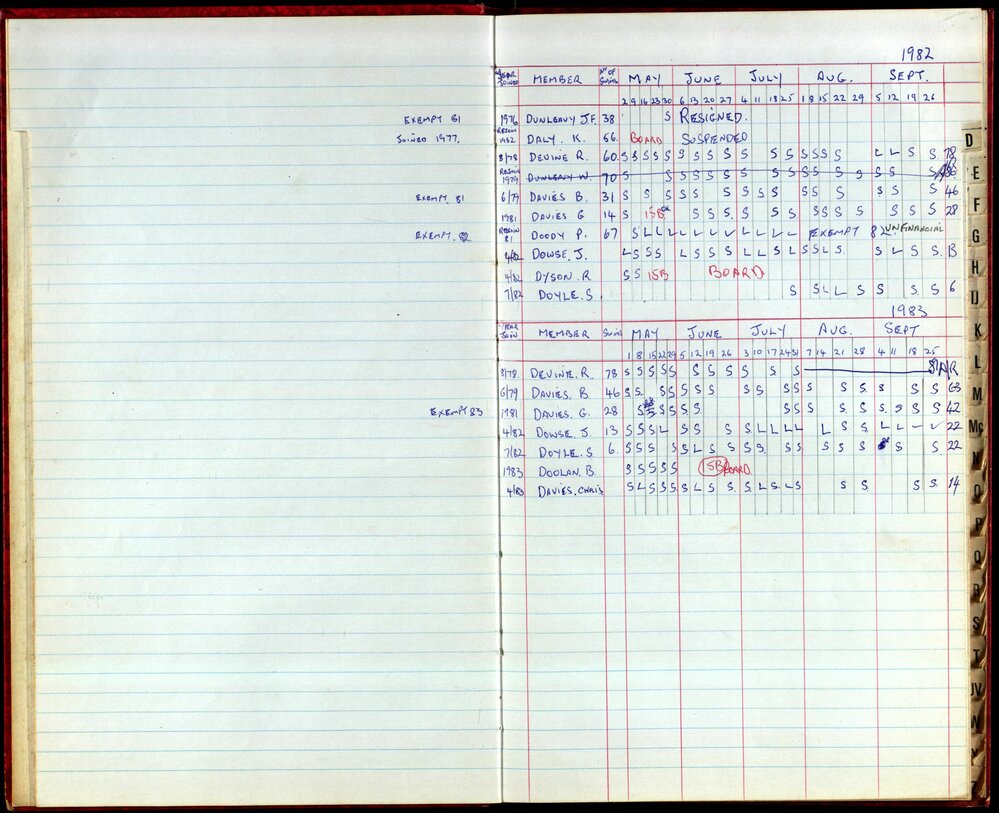 1982
YEAR JOINED MEMBER Nº OF SWIMS MAY JUNE JULY AUG. SEPT.
2 9 16 23 30 6 13 20 27 4 11 18 25 1 8 15 22 29 5 12 19 26
EXEMPT 81 1976 DUNLEAVY J.F. 38 S RESIGNED.
JOINED 1977. REJOIN 1982 DALY. K. 56. BOARD SUSPENDED
8/78 DEVINE R. 60 S S S S S S S S S S S S S S S S S L L S S 78
REJOIN 1979 DUNLEAVY W. 70 S S S S S S S S S S S S S S S S S S
EXEMPT 81 6/79 DAVIES B. 31 S S S S S S S S S S S S S S S 46
1981 DAVIES G 14 S 15B OK S S S S S S S S S S S S S 28
EXEMPT. REJOIN 81 DOODY P. 67 S L L L L L L L L L L L EXEMPT 82. UNFINANCIAL
4/82 DOWSE. J. L S S S L S S S S L L S L S S L S S L S S 13
4/82 DYSON. R S S 15B BOARD
7/82 DOYLE. S S S L L S S S S 6
1983
YEAR JOIN MEMBER SWIMS MAY JUNE JULY AUG. SEPT
1 8 15 22 29 5 12 19 26 3 10 17 24 31 7 14 21 28 4 11 18 25
8/78. DEVINE. R. 78 S S S S S S S S S S S S
6/79 DAVIES. B. 46 S S. S S S S S S S S S S S S S S S S 63
EXEMPT 83 1981 DAVIES. G. 28 S S S S S S S S S S S S S S S 42
4/82 DOWSE. J. 13 S S S L S S S S L L L L L S S L L 22
7/82 DOYLE. S 6. S S S S S L S S S S S S S S S S S 22
1983 DOOLAN. B S S S S S 15B BOARD
4/83 DAVIES. CHRIS S L S S S S L S S. S L S L S S S S S. 14
D
E
F
G
H
IJ
K
L
M
Mc
N
O
P
Q
R
S
T
UV
W
Y